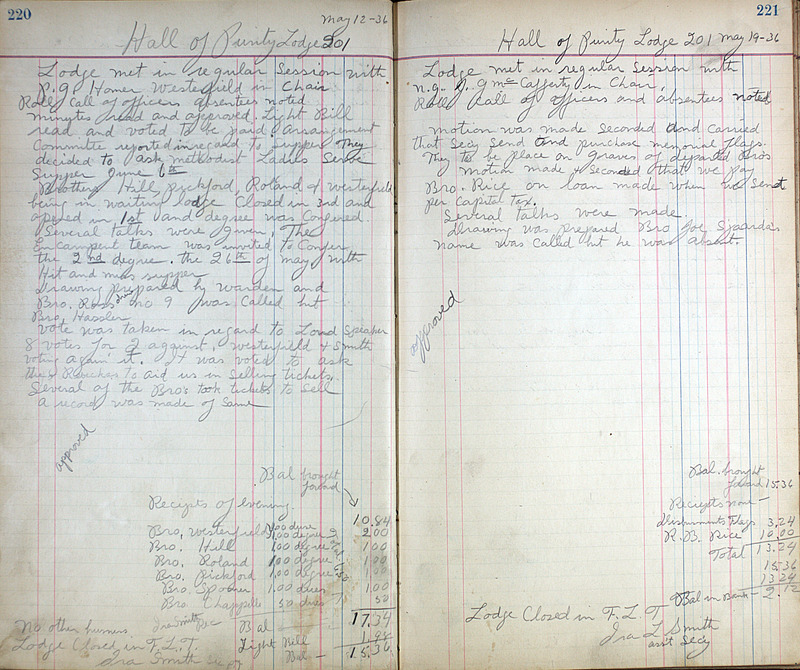 220
May 12-36
Hall of Purity Lodge 201
Lodge met in regular Session with
P.G Homer Westerfield in Chair
Roll Call of officers absentees noted
minutes read and approved. Light Bill
read and voted to be paid. Arrangement
Committee reported in regard to supper. They
decided to ask methodist Ladies Serve
Supper June 6th
Brothers Hill, Pickford, Roland & Westerfield
being in waiting lodge Closed in 3rd and
opened in 1st and degree was Confered.
Several talks were given, The
Encampent team was invited to Confer
the 2nd degree. the 26th of may with
Hit and miss supper
Drawing prepared by warden and
Bro. Ross no 9 was Called but
Bro. Hassler
Vote was taken in regard to Loud Speaker
8 votes for 2 against, Westerfield & Smith
voting again it. It was voted to ask
the Rebeckas to aid us in Selling tickets.
Several of the Bro's took tickets to Sell
a record was made of Same
approved
Bal brought
forward
Recipts of evening.
10.84
Bro. Westerfield 1.00 dues 1.00 degree 2.00
Bro. Hill 1.00 degree 1.00
Bro. Roland 1.00 degree 1.00
Bro. Pickford 1.00 degree 1.00
Bro. Spooner 1.00 dues 1.00
Bro. Chappelle 50 dues 50
Ira Smith Sec Bal 17.34
No other business Light Bill 1.98
Lodge Closed in F.L.T. Bal - 15.36
Ira Smith Secy
221
May 19-36
Hall of Purity Lodge 201
Lodge met in regular Session with
n.g. P. G mcCafferty in Chair,
Roll Call of officers and absentees noted.
motion was made Seconded and carried
that Secy Send and purchase memorial flags.
They to be place on graves of departed Bros
motion made & Seconded that we pay
Bro. Rice on loan made when we Send
per Capital tax.
Several talks were made.
drawing was prepared Bro Joe Sjaarda's
name was called but he was absent.
approved
Bal. brought
forward 15.36
Reciepts none -
disburnments Flags 3.24
R.B. Rice 10.00
Total 13.24
15.36
13.24
Bal in Bank - 2.12
Lodge Closed in F. L. T
Ira L Smith
asst Secy